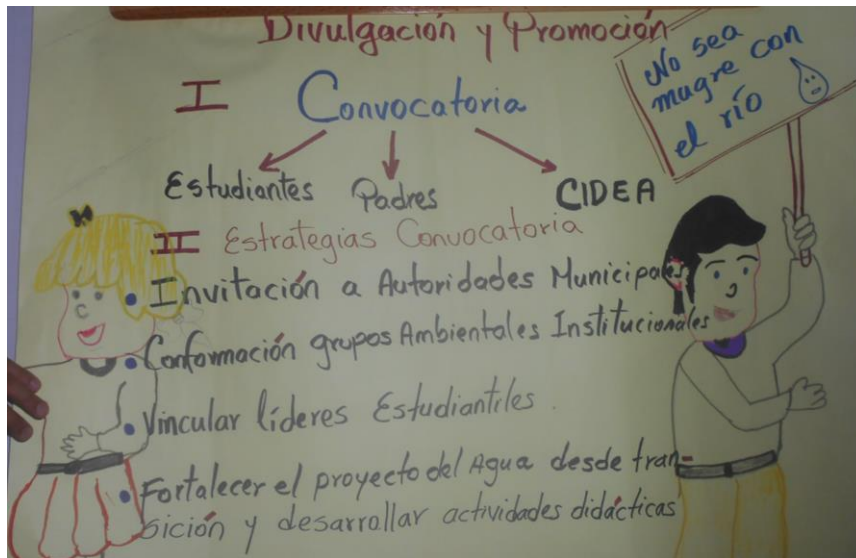 Divulgación y Promoción
I Convocatoria
Estudiantes Padres CIDEA
II Estrategias Convocatoria
• Invitación a Autoridades Municipales
• Conformación grupos Ambientales Institucionales
• Vincular líderes Estudiantiles.
• Fortalecer el proyecto del Agua desde tran-
sición y desarrollar actividades didácticas
No sea
mugre con
el río